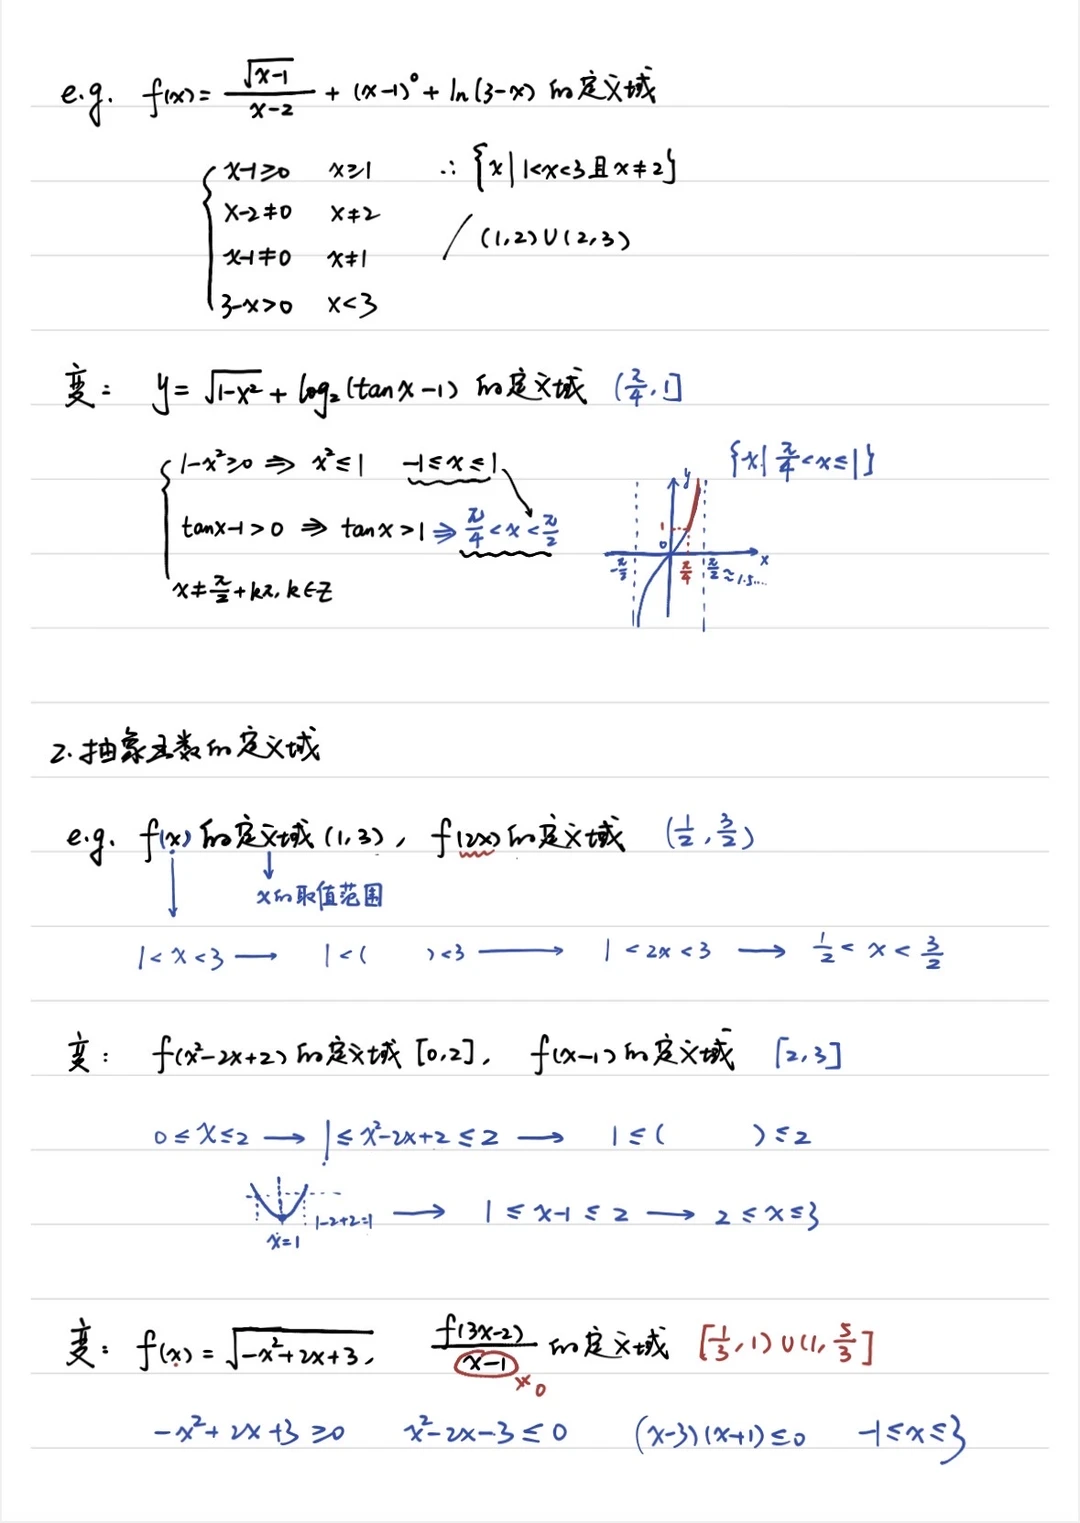 e.g. f(x) = √(x-1)/(x-2) + (x-1)⁰ + ln(3-x) 的定义域
{ x-1≥0 x≥1 ∴ {x|1<x<3且x≠2}
x-2≠0 x≠2 / (1,2)∪(2,3)
x-1≠0 x≠1
3-x>0 x<3
变: y = √(1-x²) + log₂(tanx-1) 的定义域 (π/4, 1]
{ 1-x²≥0 ⇒ x²≤1 -1≤x≤1 {x|π/4<x≤1}
tanx-1>0 ⇒ tanx>1 ⇒ π/4<x<π/2
x≠π/2+kπ, k∈Z
y
1
0 x
-π/2 π/4 π/2≈1.5....
2. 抽象函数的定义域
e.g. f(x)的定义域(1,3), f(2x)的定义域 (1/2, 3/2)
↓ ↓ x的取值范围
1<x<3 → 1<( )<3 → 1<2x<3 → 1/2<x<3/2
变: f(x²-2x+2)的定义域[0,2], f(x-1)的定义域 [2,3]
0≤x≤2 → 1≤x²-2x+2≤2 → 1≤( )≤2
1-2+2=1 → 1≤x-1≤2 → 2≤x≤3
x=1
变: f(x) = √(-x²+2x+3), f(3x-2)/(x-1) 的定义域 [1/3,1)∪(1,5/3]
≠0
-x²+2x+3≥0 x²-2x-3≤0 (x-3)(x+1)≤0 -1≤x≤3